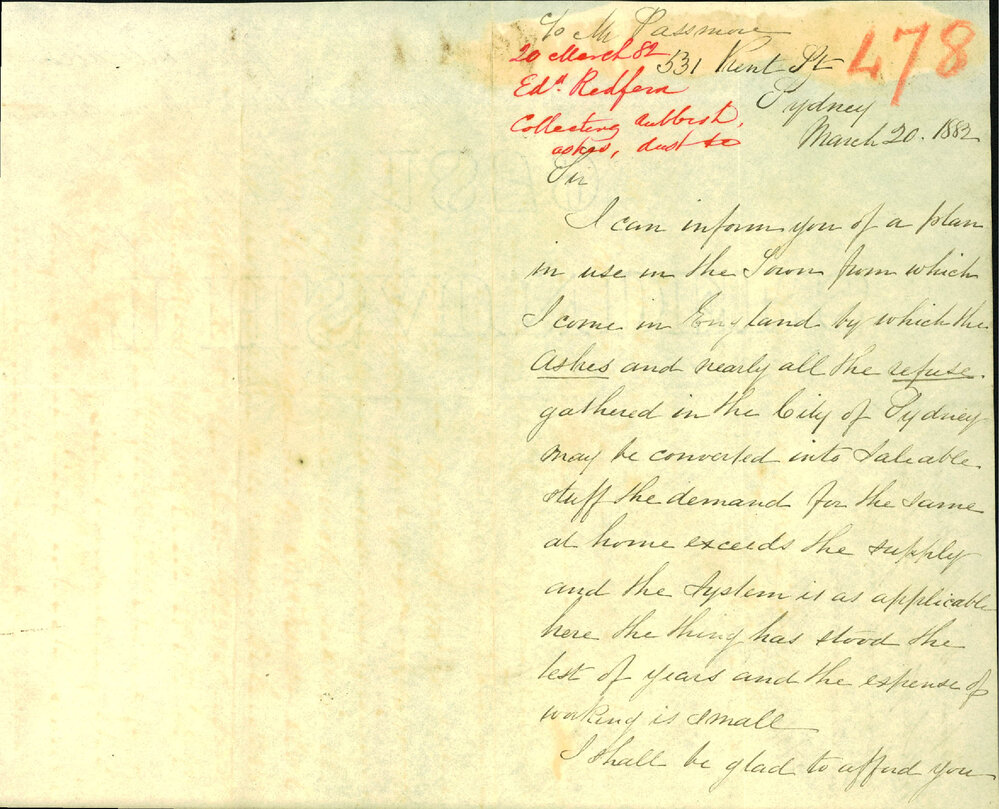 C/o Mr Passmore
531 Kent St
Sydney
March 20. 1882
478
20 March 82
Edd. Redfern
Collecting rubbish,
ashes, dust &c
Sir
I can inform you of a plan
in use in the Town from which
I come in England by which the
Ashes and nearly all the refuse
gathered in the City of Sydney
may be converted into saleable
stuff the demand for the same
at home exceeds the supply
and the system is as applicable
here the thing has stood the
test of years and the expense of
working is small
I shall be glad to afford you